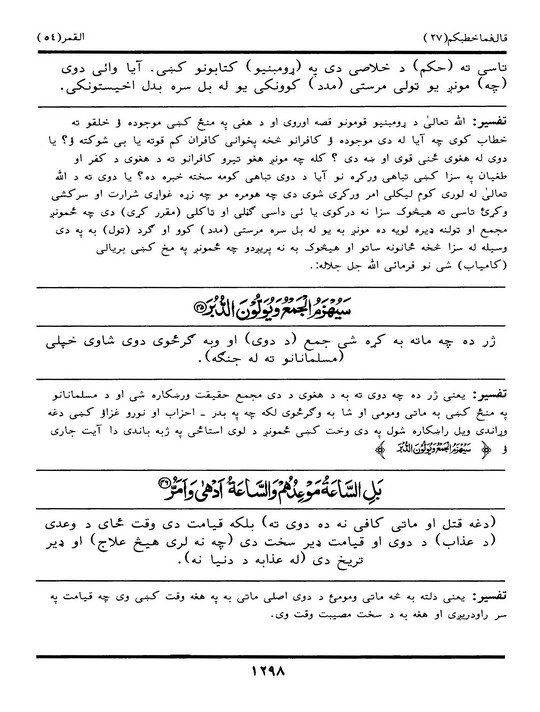 قال‌فماخطبکم(۲۷) القمر(٥٤)
تاسې ته (حکم) د خلاصی دی په (ړومبنیو) کتابونو کښې. آیا وائی دوی
(چه) مونږ یو ټولی مرستي (مدد) کوونکی یو له بل سره بدل اخیستونکی.
تفسیر: الله تعالیٰ د ړومبنیو قومونو قصه اوروی او د هغې په منځ کښې موجوده ؤ خلقو ته
خطاب کوی چه آیا له دی موجوده ؤ کافرانو څخه پخوانی کافران کم قوته یا بی شوکته ؤ؟ یا
دوی له هغوی ځنی قوی او ښه دی ؟ کله چه مونږ هغو تیرو کافرانو ته د هغوی د کفر او
طغیان په سزا کښې تباهی ورکړه نو آیا د دوی تباهی کومه سخته خبره ده؟ یا دوی ته د الله
تعالیٰ له لوری کوم لیکلی امر ورکړی شوی دی چه هومره مو چه زړه غواړی شرارت او سرکشی
وکړئ تاسې ته هیڅوک سزا نه درکوی یا ئې داسې گڼلی او ټاکلی (مقرر کړی) دی چه ځمونږ
مجمع او ټولنه ډیره لویه ده مونږ به یو له بل سره مرستی (مدد) کوو او گرد (ټول) به په دی
وسیله له سزا څخه ځانونه ساتو او هیڅوک به نه پریږدو چه ځمونږ په مخ کښې بریالی
(کامیاب) شی نو فرمائی الله جل جلاله:.
سَيُهْزَمُ الْجَمْعُ وَيُوَلُّونَ الدُّبُرَ ﴿٤٥﴾
ژر ده چه ماته به کړه شی جمع (د دوی) او وبه گرځوی دوی شاوی خپلی
(مسلمانانو ته له جنگه).
تفسیر: یعنی ژر ده چه دوی ته به د هغوی د دی مجمع حقیقت ورښکاره شی او د مسلمانانو
په منځ کښې به ماتی ومومی او شا به وگرځوی لکه چه په بدر ـ احزاب او نورو غزاؤ کښې دغه
وړاندی ویل راښکاره شول په دی وخت کښې ځمونږ د لوی استاځی په ژبه باندی دا آیت جاری
ؤ ﴿ سَيُهْزَمُ الْجَمْعُ وَيُوَلُّونَ الدُّبُرَ ﴾
بَلِ السَّاعَةُ مَوْعِدُهُمْ وَالسَّاعَةُ أَدْهَىٰ وَأَمَرُّ ﴿٤٦﴾
(دغه قتل او ماتی کافی نه ده دوی ته) بلکه قیامت دی وقت ځای د وعدی
(د عذاب) د دوی او قیامت ډیر سخت دی (چه نه لری هیڅ علاج) او ډیر
تریخ دی (له عذابه د دنیا نه).
تفسیر: یعنی دلته به څه ماتی ومومئ د دوی اصلی ماتی به په هغه وقت کښې وی چه قیامت په
سر راودریږی او هغه به د سخت مصیبت وقت وی.
١٢٩٨